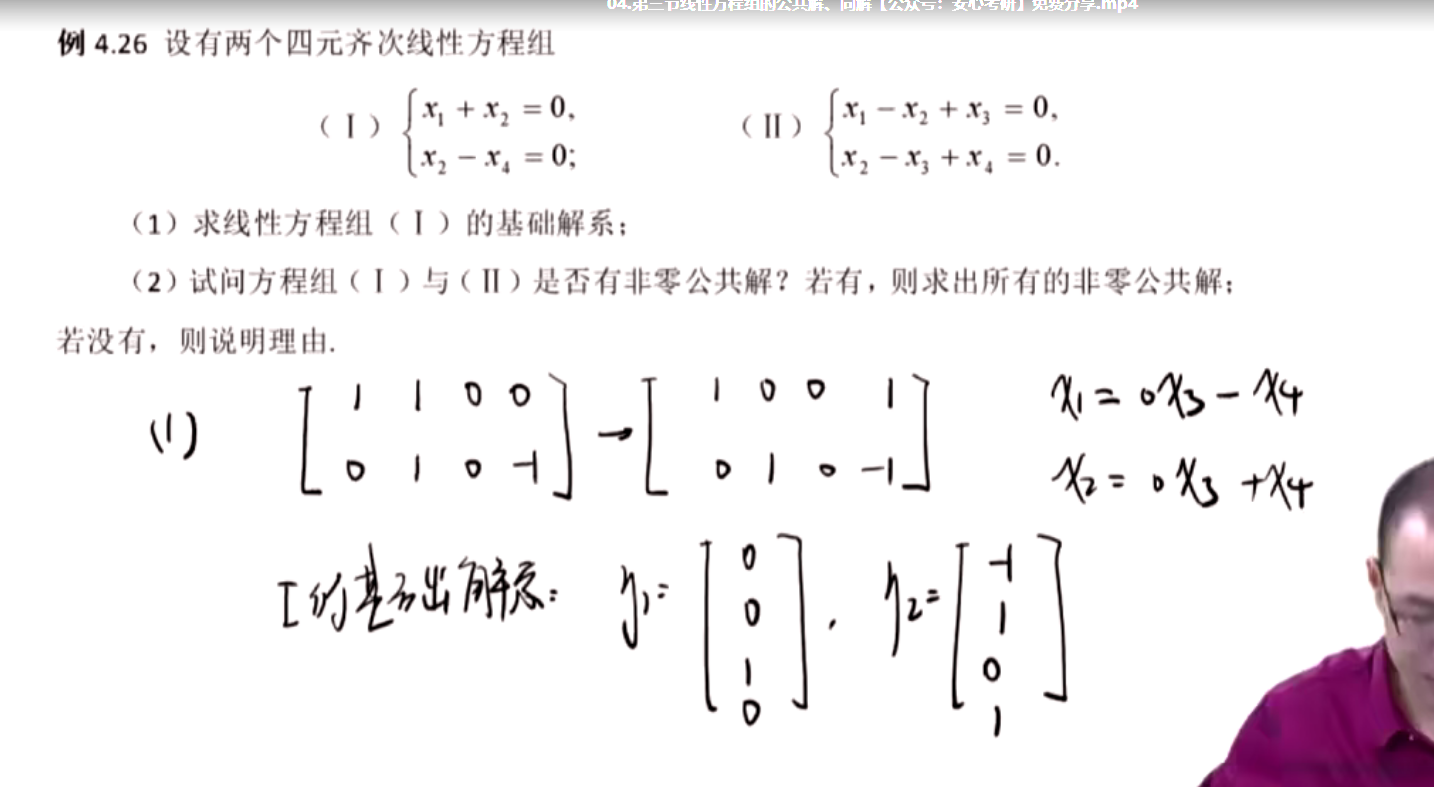 04.第三节线性方程组的公共解、同解【公众号：安心考研】免费分享.mp4
例 4.26 设有两个四元齐次线性方程组
（Ⅰ） { x₁ + x₂ = 0, （Ⅱ） { x₁ − x₂ + x₃ = 0,
x₂ − x₄ = 0; x₂ − x₃ + x₄ = 0.
（1）求线性方程组（Ⅰ）的基础解系；
（2）试问方程组（Ⅰ）与（Ⅱ）是否有非零公共解？若有，则求出所有的非零公共解；
若没有，则说明理由.
(1) [ 1 1 0 0 ] → [ 1 0 0 1 ] x₁ = 0x₃ − x₄
[ 0 1 0 −1 ] [ 0 1 0 −1 ] x₂ = 0x₃ + x₄
I的基础解系： η₁= [ 0 0 1 0 ] , η₂= [ −1 1 0 1 ]